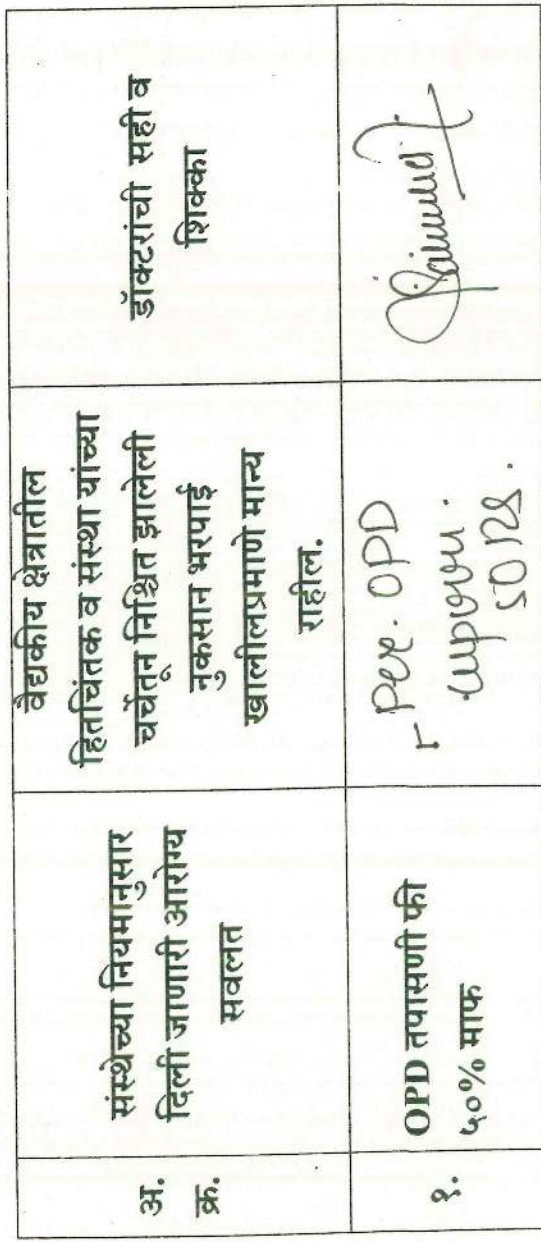 अ.
क्र.
संस्थेच्या नियमानुसार
दिली जाणारी आरोग्य
सवलत
वैद्यकीय क्षेत्रातील
हितचिंतक व संस्था यांच्या
चर्चेतून निश्चित झालेली
नुकसान भरपाई
खालीलप्रमाणे मान्य
राहील.
डॉक्टरांची सही व
शिक्का
१.
OPD तपासणी फी
५०% माफ
Per. OPD
50 RS.